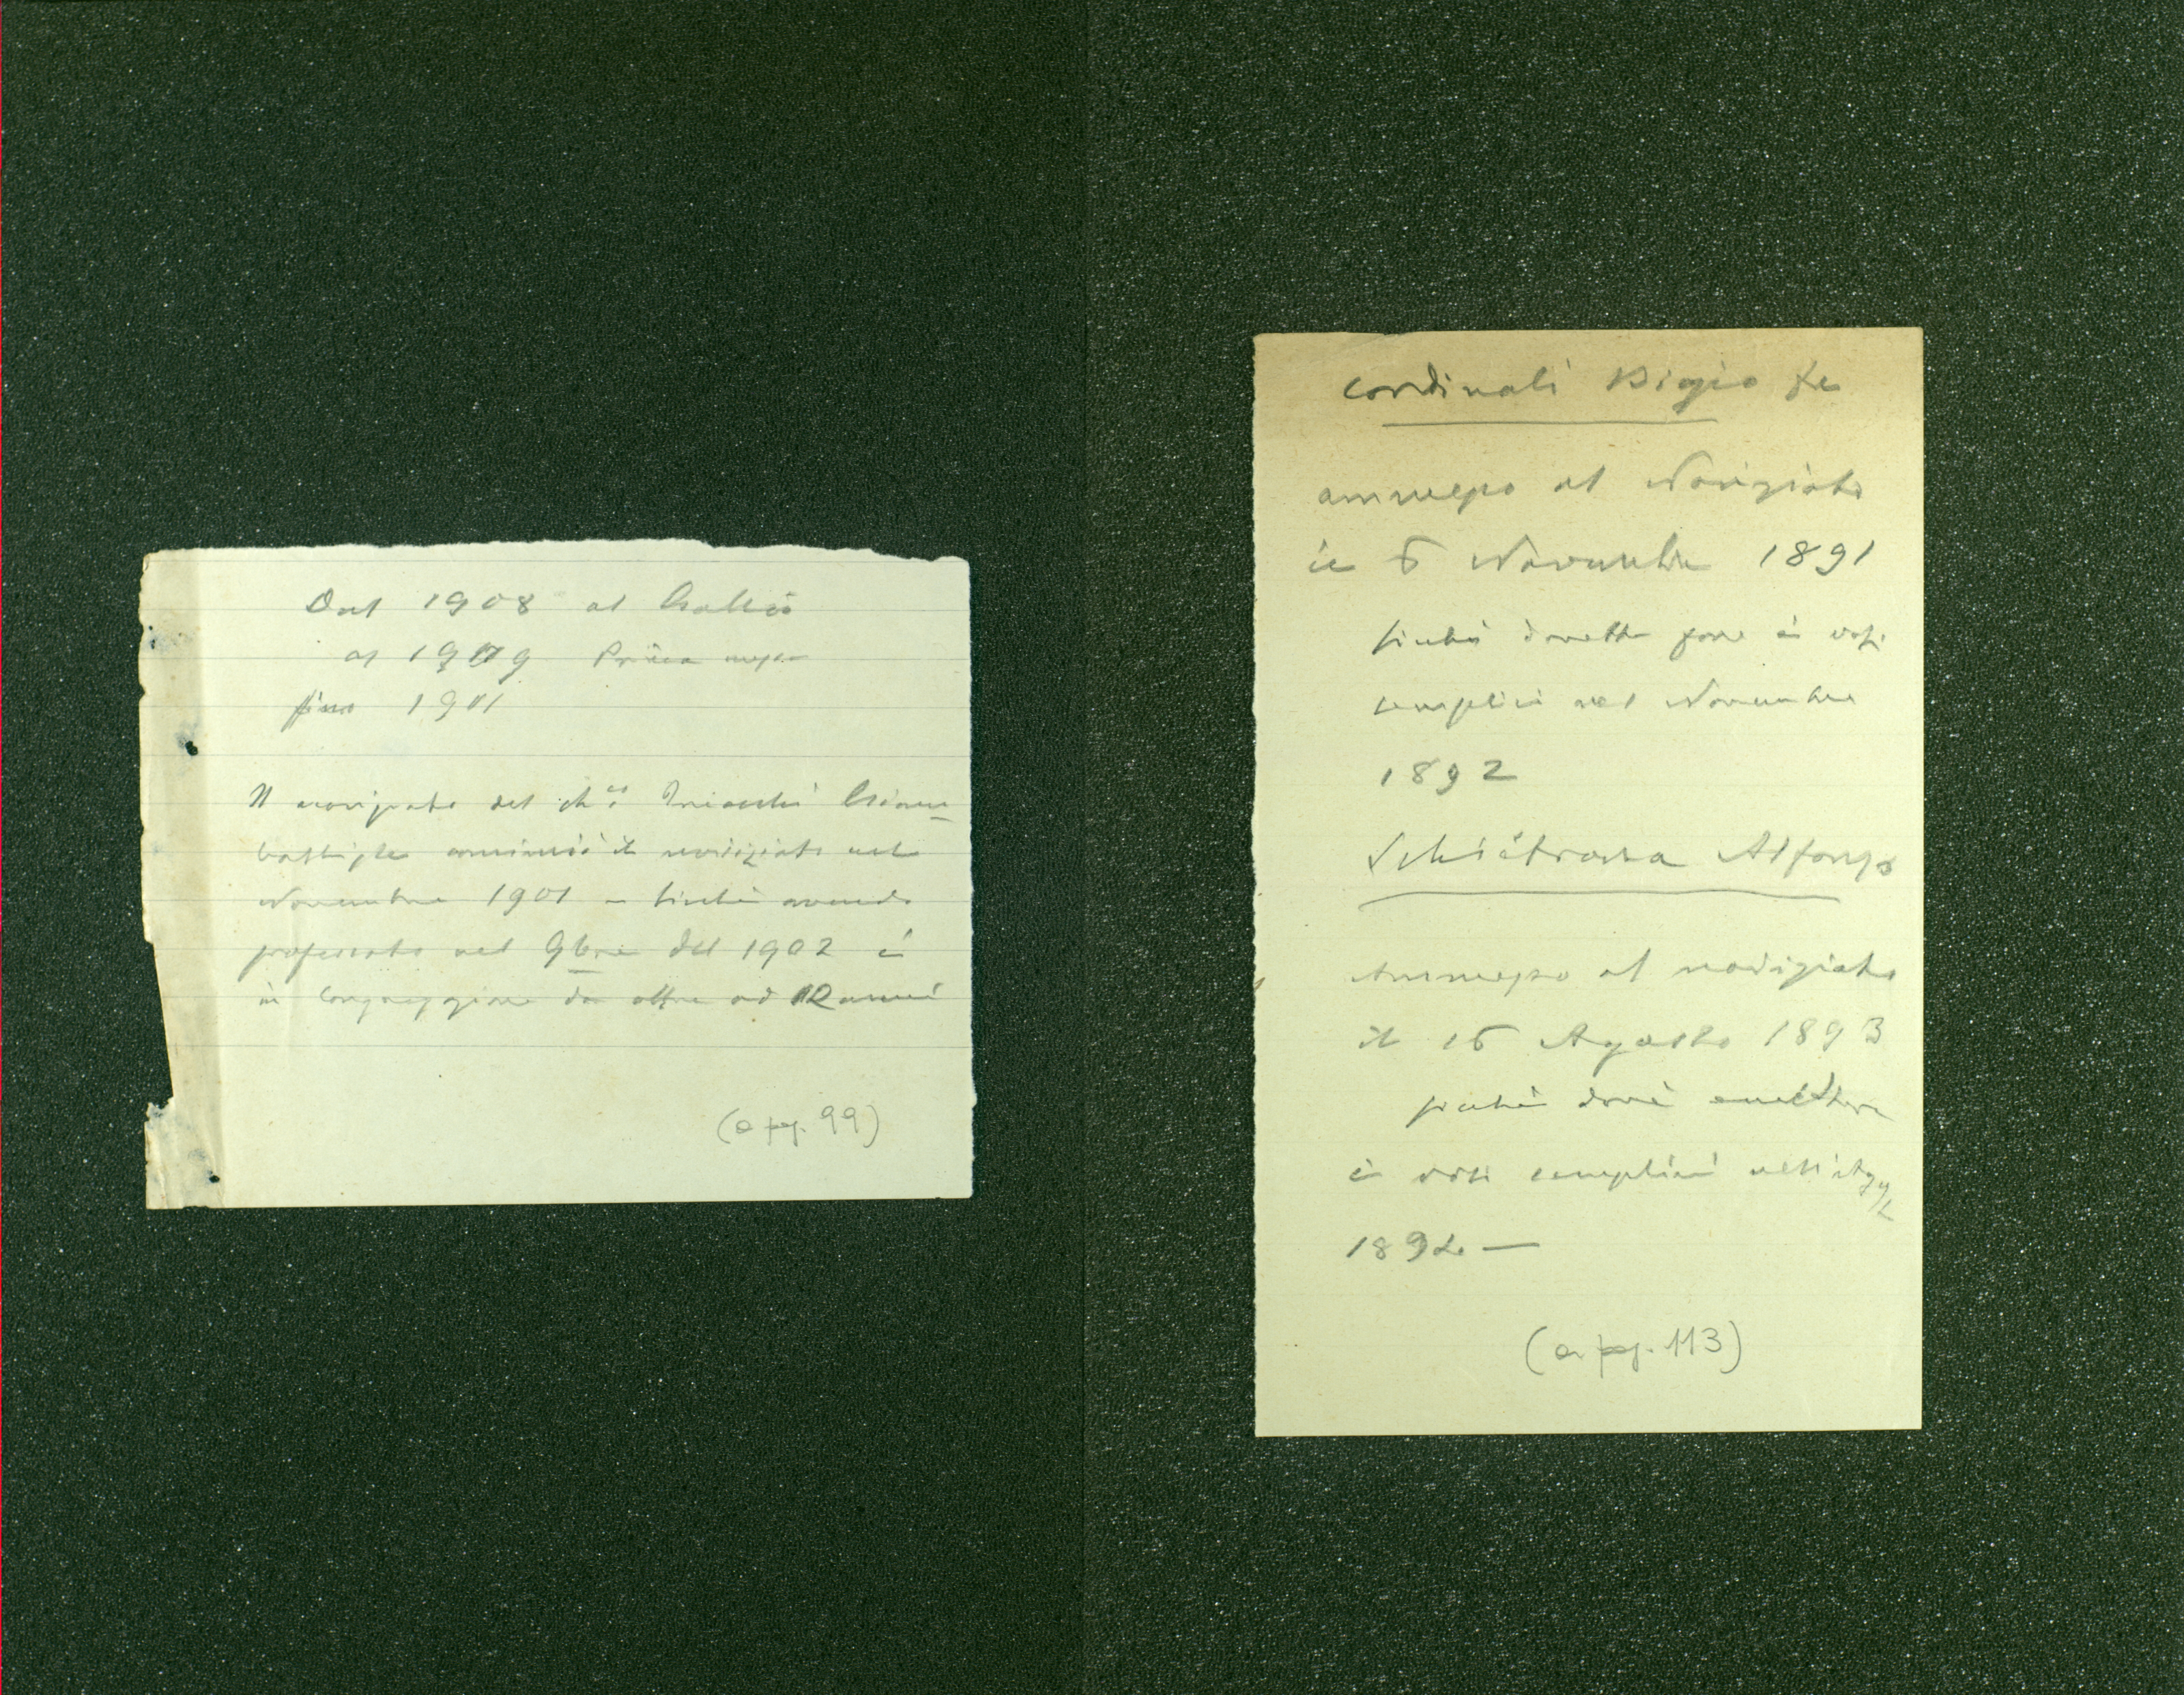 Dal 1908 al Gallio
al 1909 Prima messa
fino 1901
Il noviziato del ch.co Triacchi Giovan
battista cominciò il noviziato nel
Novembre 1901 – sicché avendo
professato nel 9bre del 1902 è
in Congregazione da oltre ad 12 anni
(a pag. 99)
Cordinali Bigio
ammesso al Noviziato
il 6 Novembre 1891
sicché dovette fare i voti
semplici nel Novembre
1892
Schiétroma Alfonso
Ammesso al noviziato
il 15 Agosto 1893
sicché dové emettere
i voti semplici
1894 —
(a pag. 113)